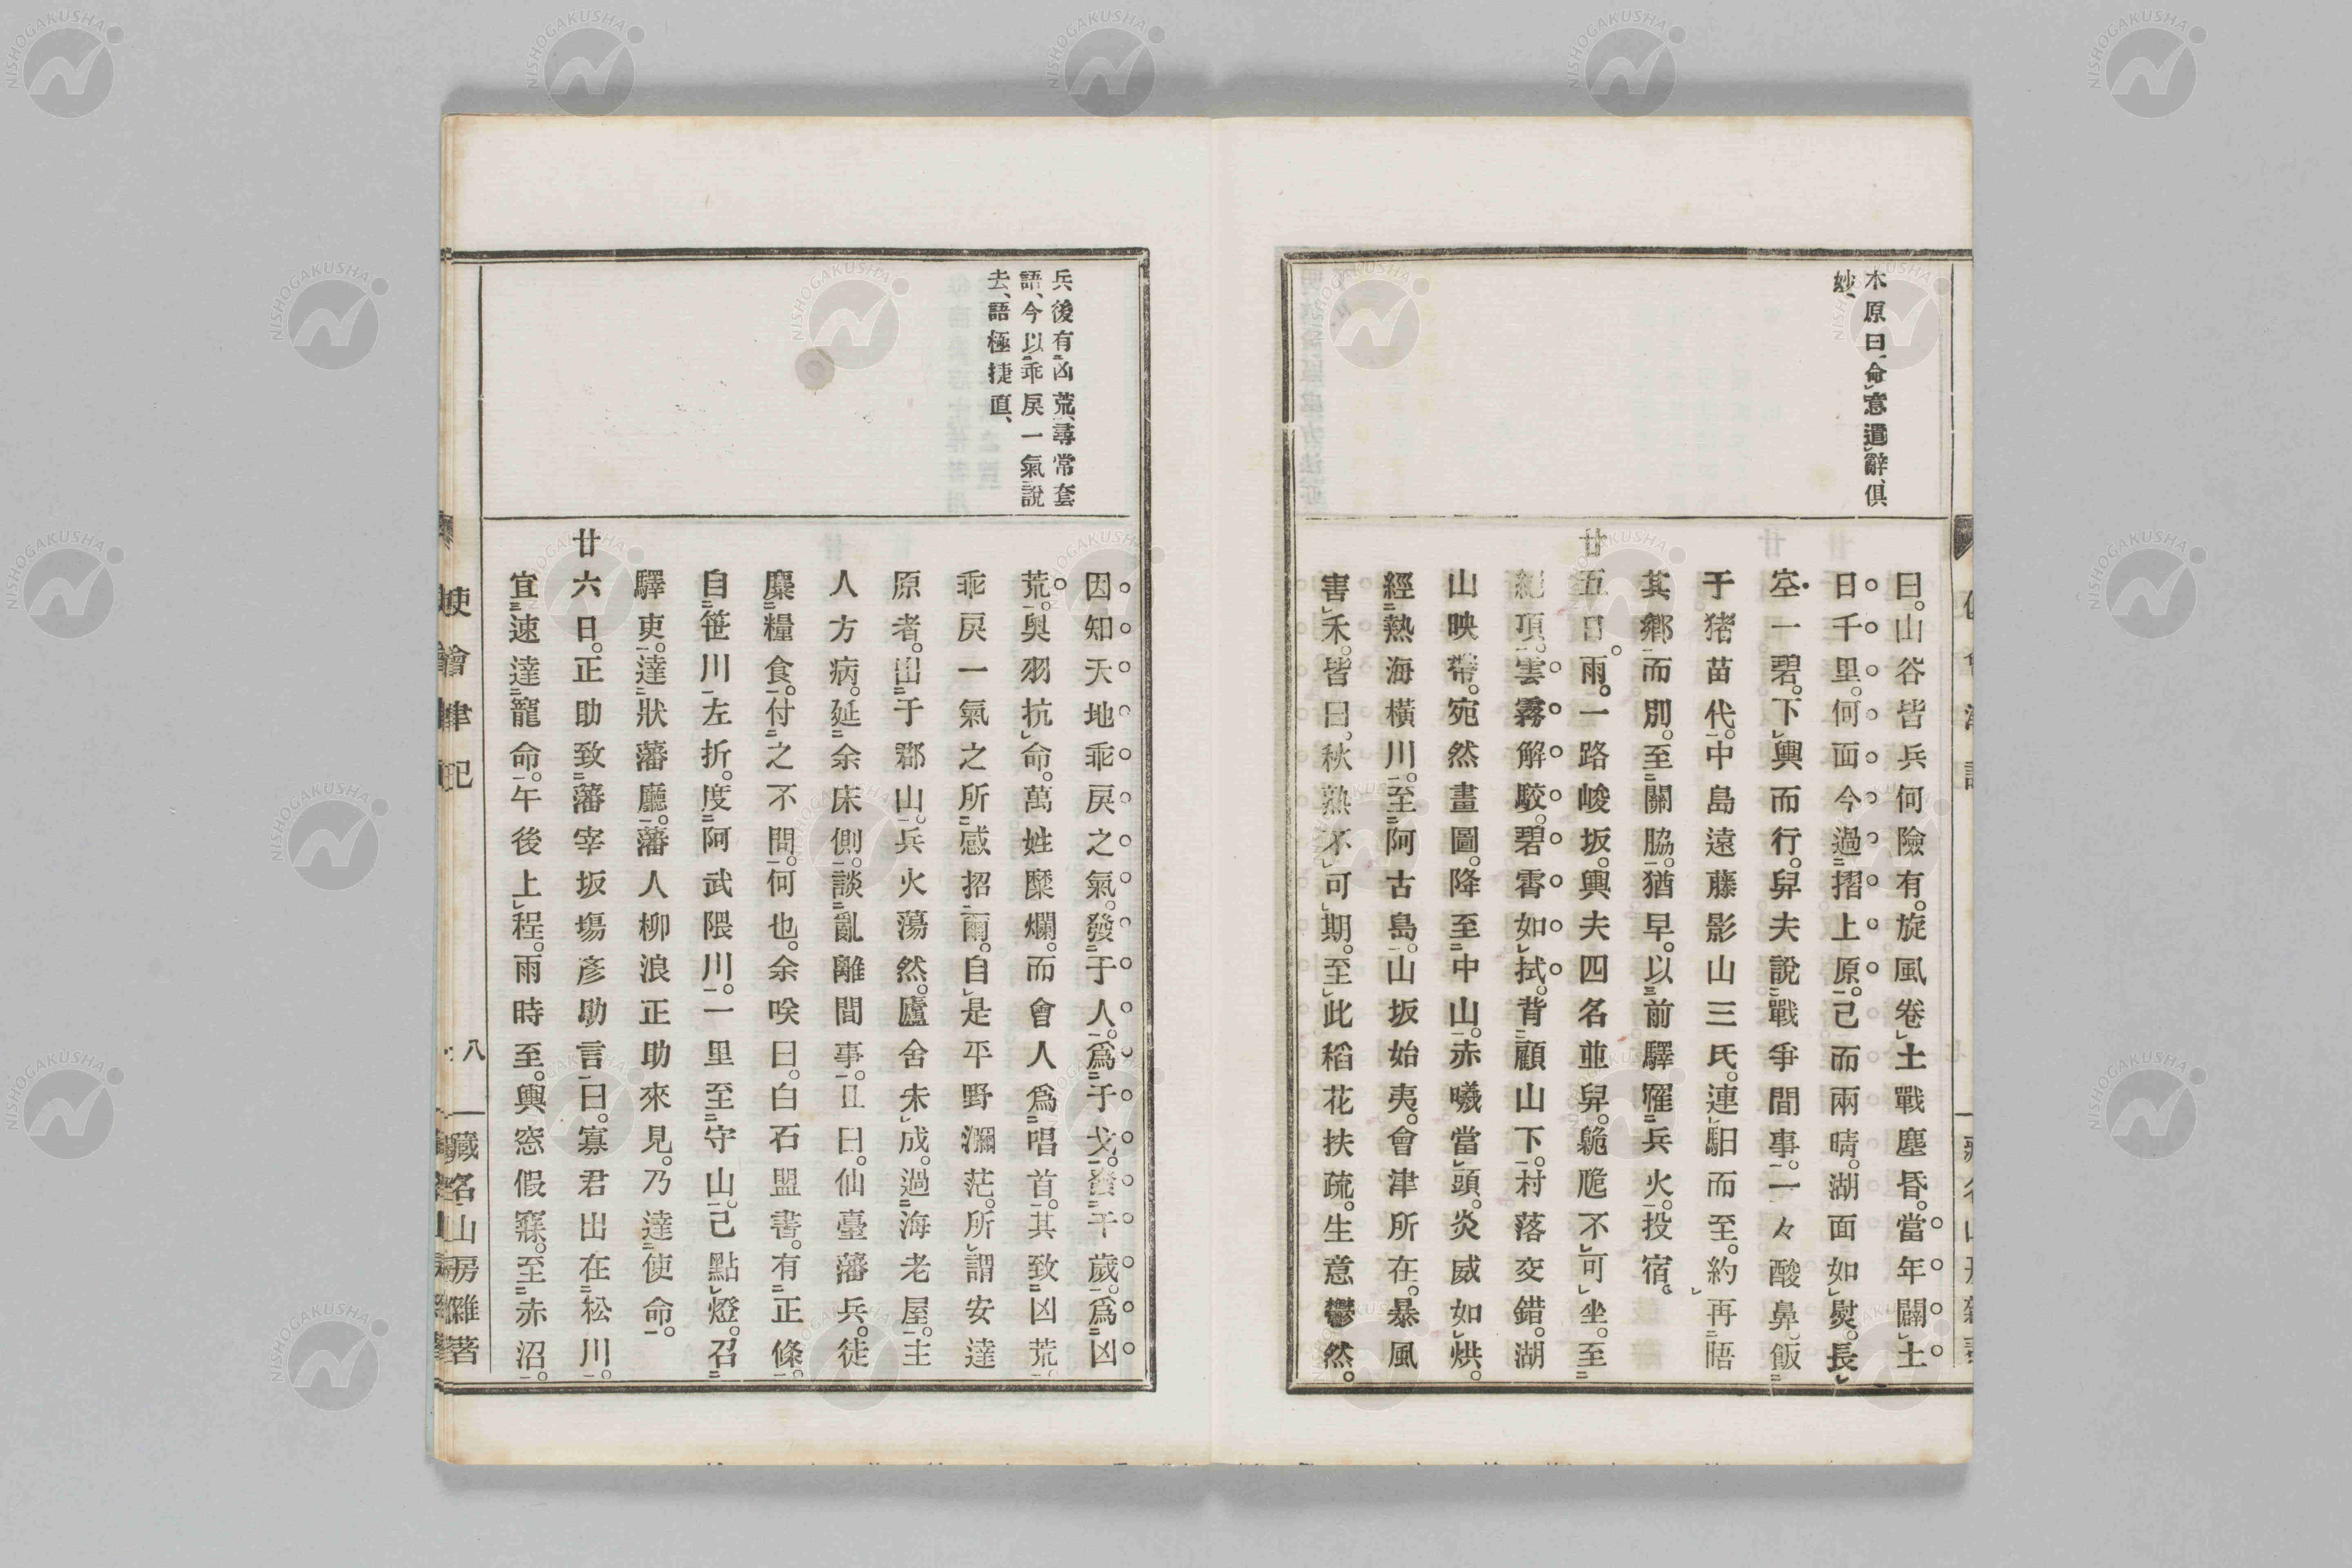 木原曰、命意遣辭、俱
妙、
曰。山谷皆兵何險有。旋風卷土戰塵昏。當年闢土
日千里。何面今過摺上原。已而兩晴。湖面如熨。長
空一碧。下輿而行。舁夫說戰爭間事。一々酸鼻。飯
于猪苗代。中島遠藤影山三氏。連馹而至。約再晤
其鄉而別。至關脇。猶早。以前驛罹兵火。投宿。
廿五日。雨。一路峻坂。輿夫四名並舁。臲卼不可坐。至
絕頂。雲霧解駮。碧霄如拭。背顧山下。村落交錯。湖
山映帶。宛然畫圖。降至中山。赤曦當頭。炎威如烘。
經熱海橫川。至阿古島。山坂始夷。會津所在。暴風
害禾。皆曰。秋熟不可期。至此稻花扶疏。生意鬱然。
兵後有凶荒、尋常套
語、今以乖戾一氣說
去、語極捷直、
因知天地乖戾之氣。發于人。爲干戈。發干歲。爲凶
荒。奧羽抗命。萬姓糜爛。而會人爲唱首。其致凶荒。
乖戾一氣之所感招爾。自是平野瀰茫。所謂安達
原者。出于郡山。兵火蕩然。廬舍未成。過海老屋。主
人方病。延余床側。談亂離間事。且曰。仙臺藩兵。徒
麋糧食。付之不問。何也。余唉曰。白石盟書。有正條。
自笹川左折。度阿武隈川。一里至守山。已點燈。召
驛吏。達狀藩廳。藩人柳浪正助來見。乃達使命。
廿六日。正助致藩宰坂塲彥助言曰。寡君出在松川。
宜速達寵命。午後上程。雨時至。輿窓假寐。至赤沼。
使會津記
八
藏名山房雜著